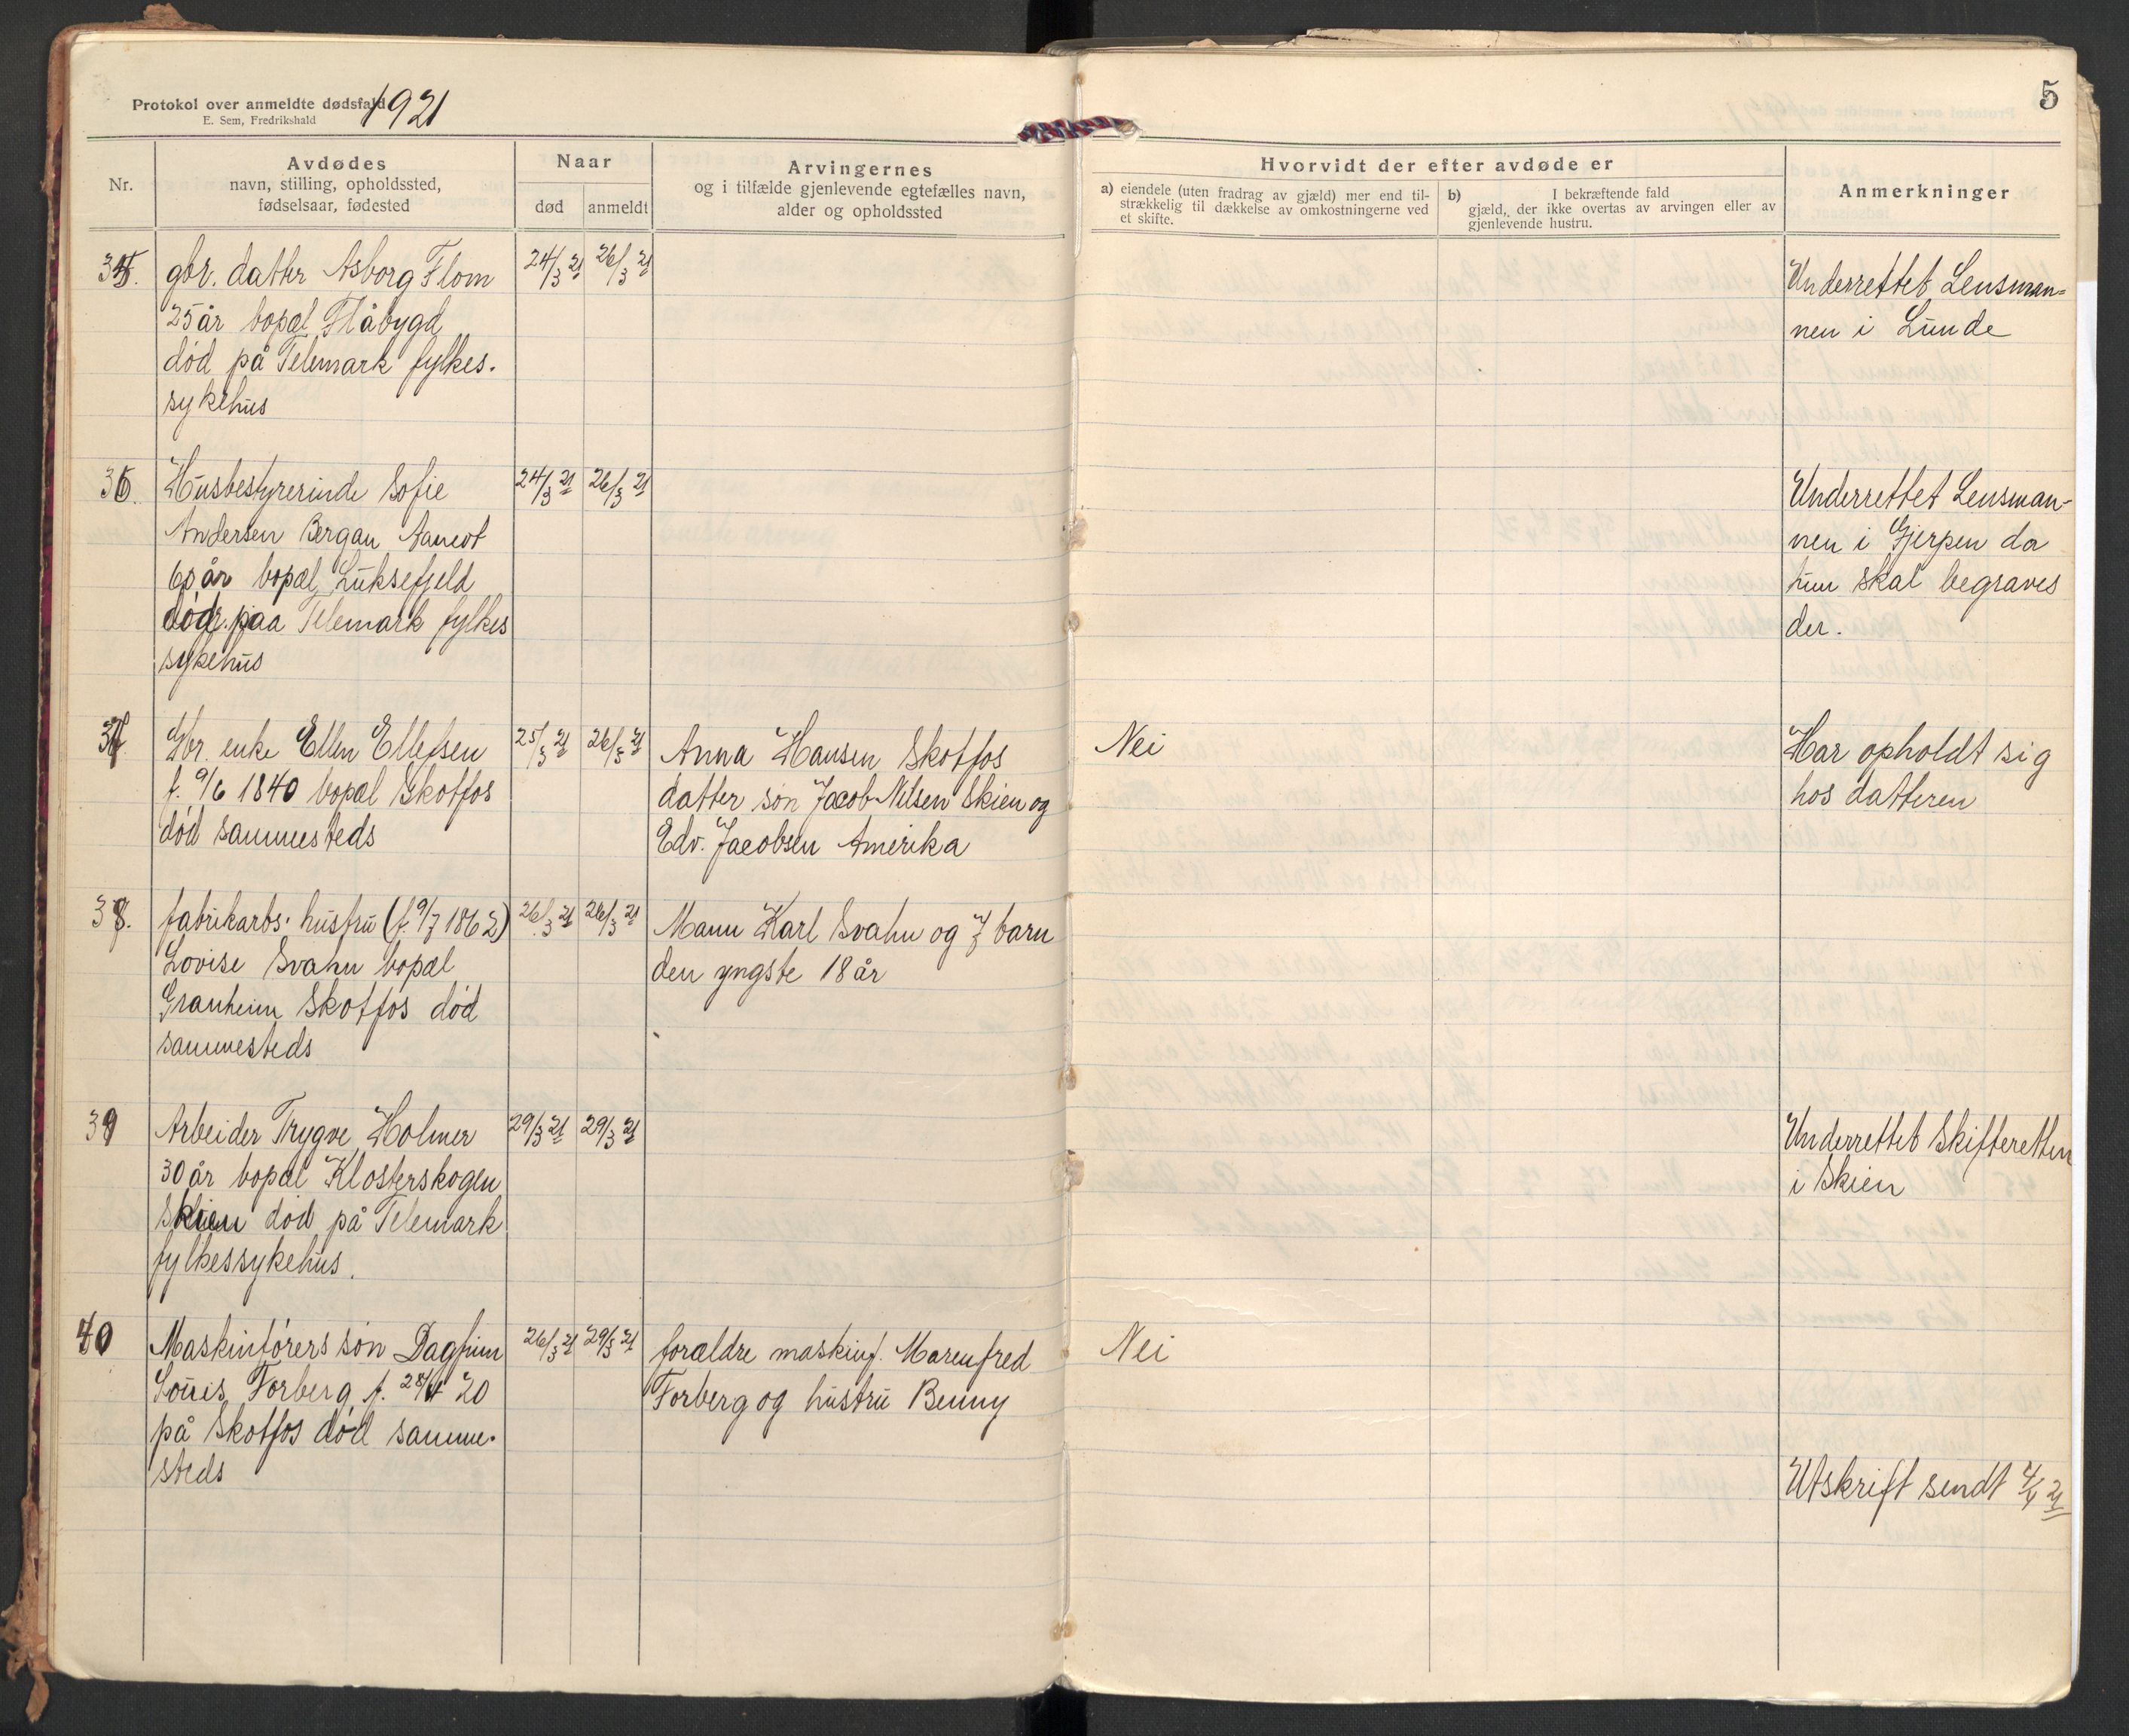 Protokol over anmeldte dødsfald 1921
E. Sem, Fredrikshald
5
Nr.
Avdødes
navn, stilling, opholdssted,
fødselsaar, fødested
Naar
død
anmeldt
Arvingernes
og i tilfælde gjenlevende egtefælles navn,
alder og opholdssted
Hvorvidt der efter avdøde er
a) eiendele (uten fradrag av gjæld) mer end til-
strækkelig til dækkelse av omkostningerne ved
et skifte.
b) I bekræftende fald
gjæld, der ikke overtas av arvingen eller av
gjenlevende hustru.
Anmerkninger
35. gbr. datter Asborg Flom 24/3 21 26/3 21
25 år bopæl Flåbygd
død på Telemark fylkes.
sykehus
Underrettet Lensman=
nen i Lunde
36. Husbestyrerinde Sofie 24/3 21 26/3 21
Andersen Bergan
60 år bopæl Luksefjeld
død paa Telemark fylkes
sykehus
Underrettet Lensman-
nen i Gjerpen da
hun skal begraves
der.
37 Gbr. enke Ellen Ellefsen 25/3 21 26/3 21
f. 9/6 1840 bopæl Skotfos
død sammesteds
Anna Hansen Skotfos
datter søn Jacob Nilsen Skien og
Edv. Jacobsen Amerika
Nei
Har opholdt sig
hos datteren
38. fabrikarbs. hustru (f. 9/7 1862) 26/3 21 26/3 21
Lovise Svahn bopæl
Granheim Skotfos død
sammesteds
Mann Karl Svahn og 7 barn
den yngste 18 år
39 Arbeider Trygve Holmer 29/3 21 29/3 21
30 år bopæl Klosterskogen
Skien død på Telemark
fylkessykehus.
Underrettet Skifteretten
i Skien
40 Maskinførers søn Dagfinn 26/3 21 29/3 21
Louis Torberg f. 20
på Skotfos død samme-
steds
forældre maskinf. Marenfred
Torberg og hustru Benny
Nei
Utskrift sendt 4/4 21